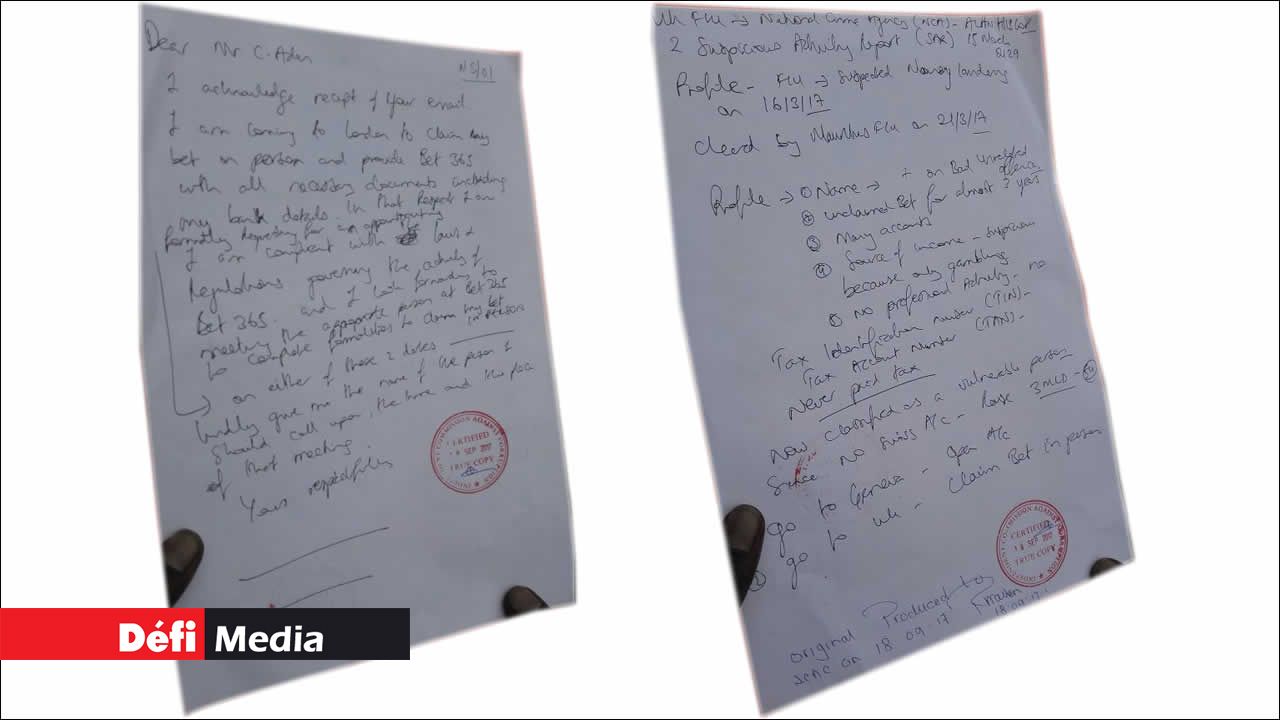 Dear Mr C. Adam
NS/01
I acknowledge receipt of your email.
I am coming to London to claim my
bet in person and provide Bet 365
with all necessary documents including
my bank details. In that Respect I am
formally requesting for an appointment
I am compliant with laws &
Regulations governing the activity of
Bet 365. and I look forwarding to
meeting the appropriate person at Bet 365
to complete formalities to claim my bet
in person
on either of these 2 dates
kindly give me the name of the person I
should call upon, the time and the place
of that meeting.
Yours respectfully
INDEPENDENT COMMISSION AGAINST CORRUPTION
CERTIFIED
SEP 2017
TRUE COPY
Uk FIU → National Crime Agency (NCA) -
2 Suspicious Activity Report (SAR) 15 March
Profile - FIU → Suspected Money laundering
on 16/3/17
Cleared by Mauritius FIU on 21/3/17
Profile → ① Name → + on Bail unrelated
offence
② unclaimed Bet for almost 2 years
③ Many accounts
④ Source of income - suspicious
because only gambling
⑤ no professional Activity - no
Tax Identification number (TIN) -
Tax Account Number (TAN) -
Never paid tax
Now classified as a vulnerable person
Since no Swiss A/c - Raise 3 MCD -
go to Geneva - open A/c
go to uk - Claim Bet in person
INDEPENDENT COMMISSION AGAINST CORRUPTION
CERTIFIED
18 SEP 2017
TRUE COPY
original Produced to
on 18.09.17
18.09.17
Défi Media